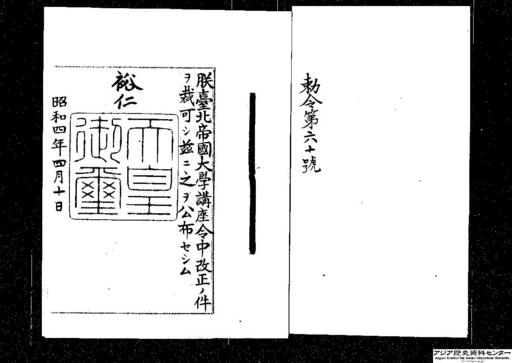 勅令第六十號
朕臺北帝國大學講座令中改正ノ件
ヲ裁可シ茲ニ之ヲ公布セシム
裕仁
天皇
御璽
昭和四年四月十日
アジア歴史資料センター
Japan Center for Asian Historical Records